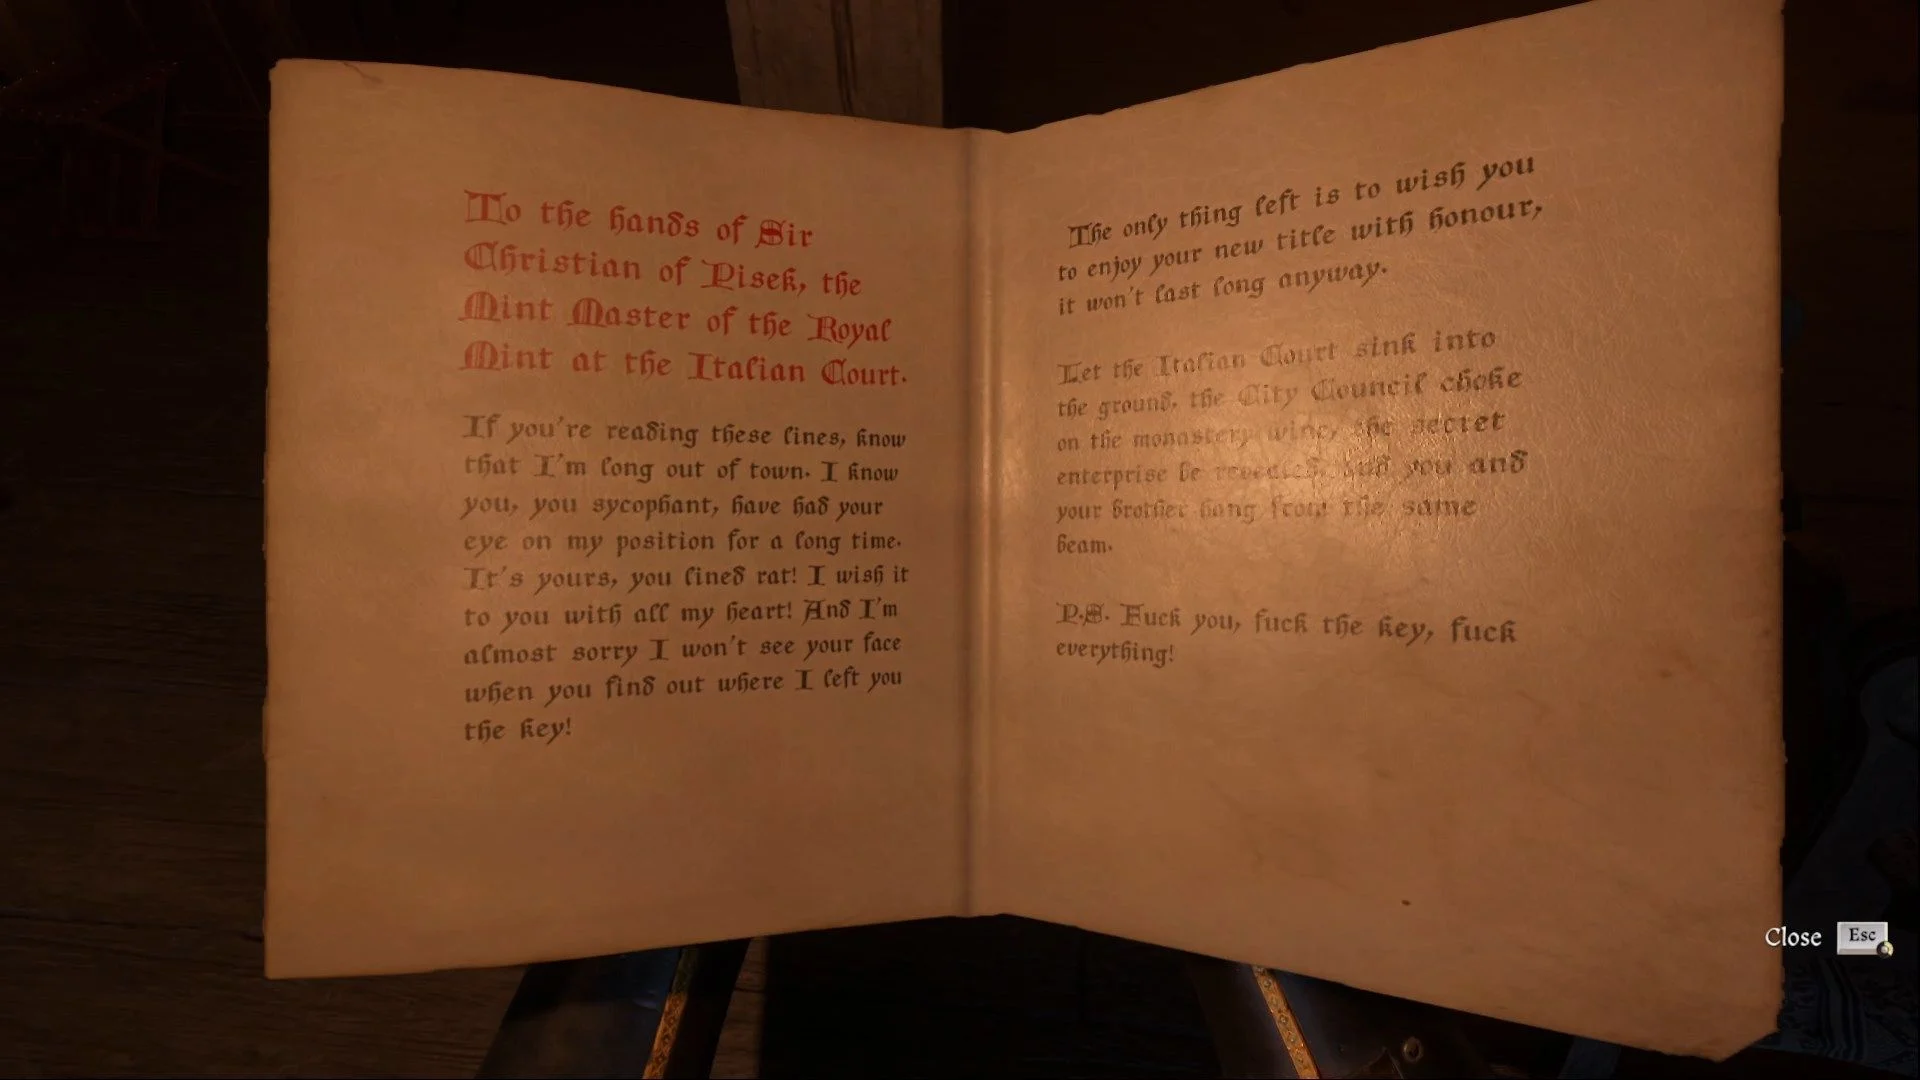 To the hands of Sir
Christian of Pisek, the
Mint Master of the Royal
Mint at the Italian Court.
If you're reading these lines, know
that I'm long out of town. I know
you, you sycophant, have had your
eye on my position for a long time.
It's yours, you lined rat! I wish it
to you with all my heart! And I'm
almost sorry I won't see your face
when you find out where I left you
the key!
The only thing left is to wish you
to enjoy your new title with honour,
it won't last long anyway.
Let the Italian Court sink into
the ground, the City Council choke
on the monastery wine, the secret
enterprise be revealed. And you and
your brother hang from the same
beam.
P.S. Fuck you, fuck the key, fuck
everything!
Close Esc